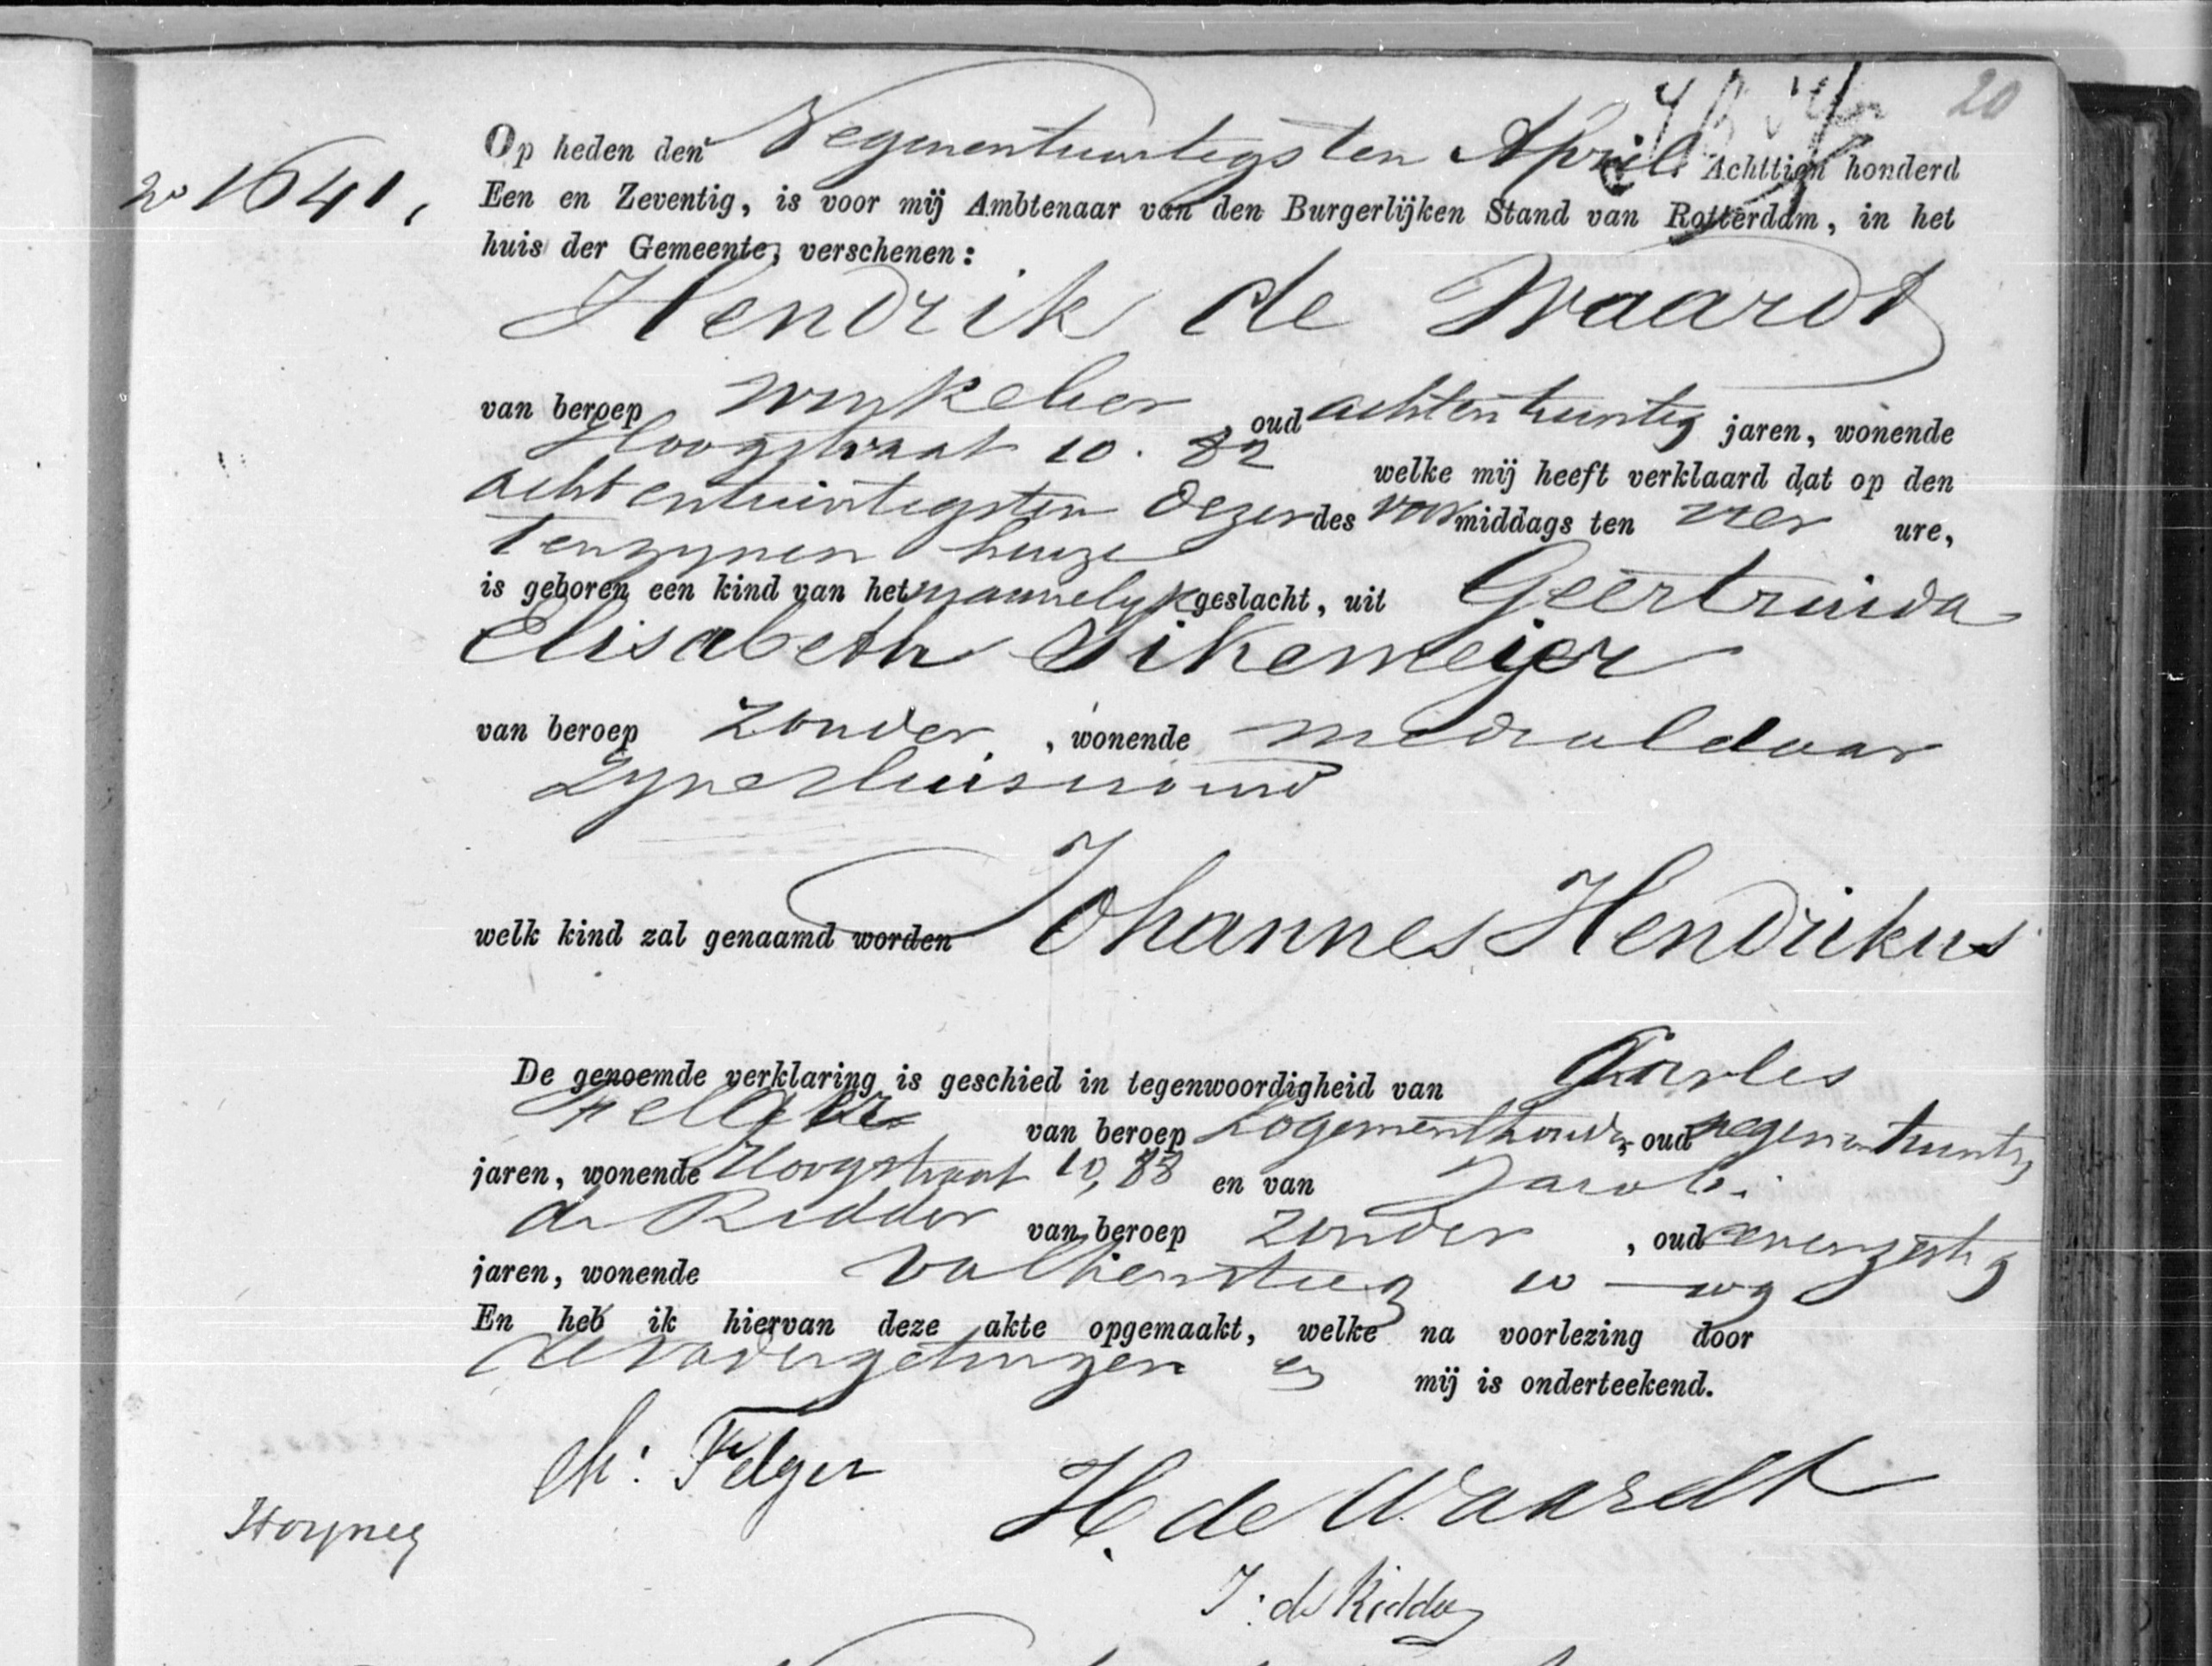 20
No 1641,
Op heden den Negenentwintigsten April Achttien honderd
Een en Zeventig, is voor mij Ambtenaar van den Burgerlijken Stand van Rotterdam, in het
huis der Gemeente, verschenen:
Hendrik de Waardt
van beroep winkelier oud achtentwintig jaren, wonende
Hoogstraat 10. 82 welke mij heeft verklaard dat op den
achtentwintigsten dezer des voormiddags ten vier ure,
tenzynen huize
is geboren een kind van het mannelyk geslacht, uit Geertruida
Elisabeth Sikemeijer
van beroep zonder, wonende mede aldaar
zyne huisvrouw
welk kind zal genaamd worden Johannes Hendrikus
De genoemde verklaring is geschied in tegenwoordigheid van Charles
Felger van beroep Logementhouder, oud negenentwintig
jaren, wonende Hoogstraat 10, 88 en van Jacob
de Ridder van beroep zonder, oud zevenzestig
jaren, wonende
En heb ik hiervan deze akte opgemaakt, welke na voorlezing door
de vader getuigen en mij is onderteekend.
Ch: Felger
H. de Waardt
J: de Ridder